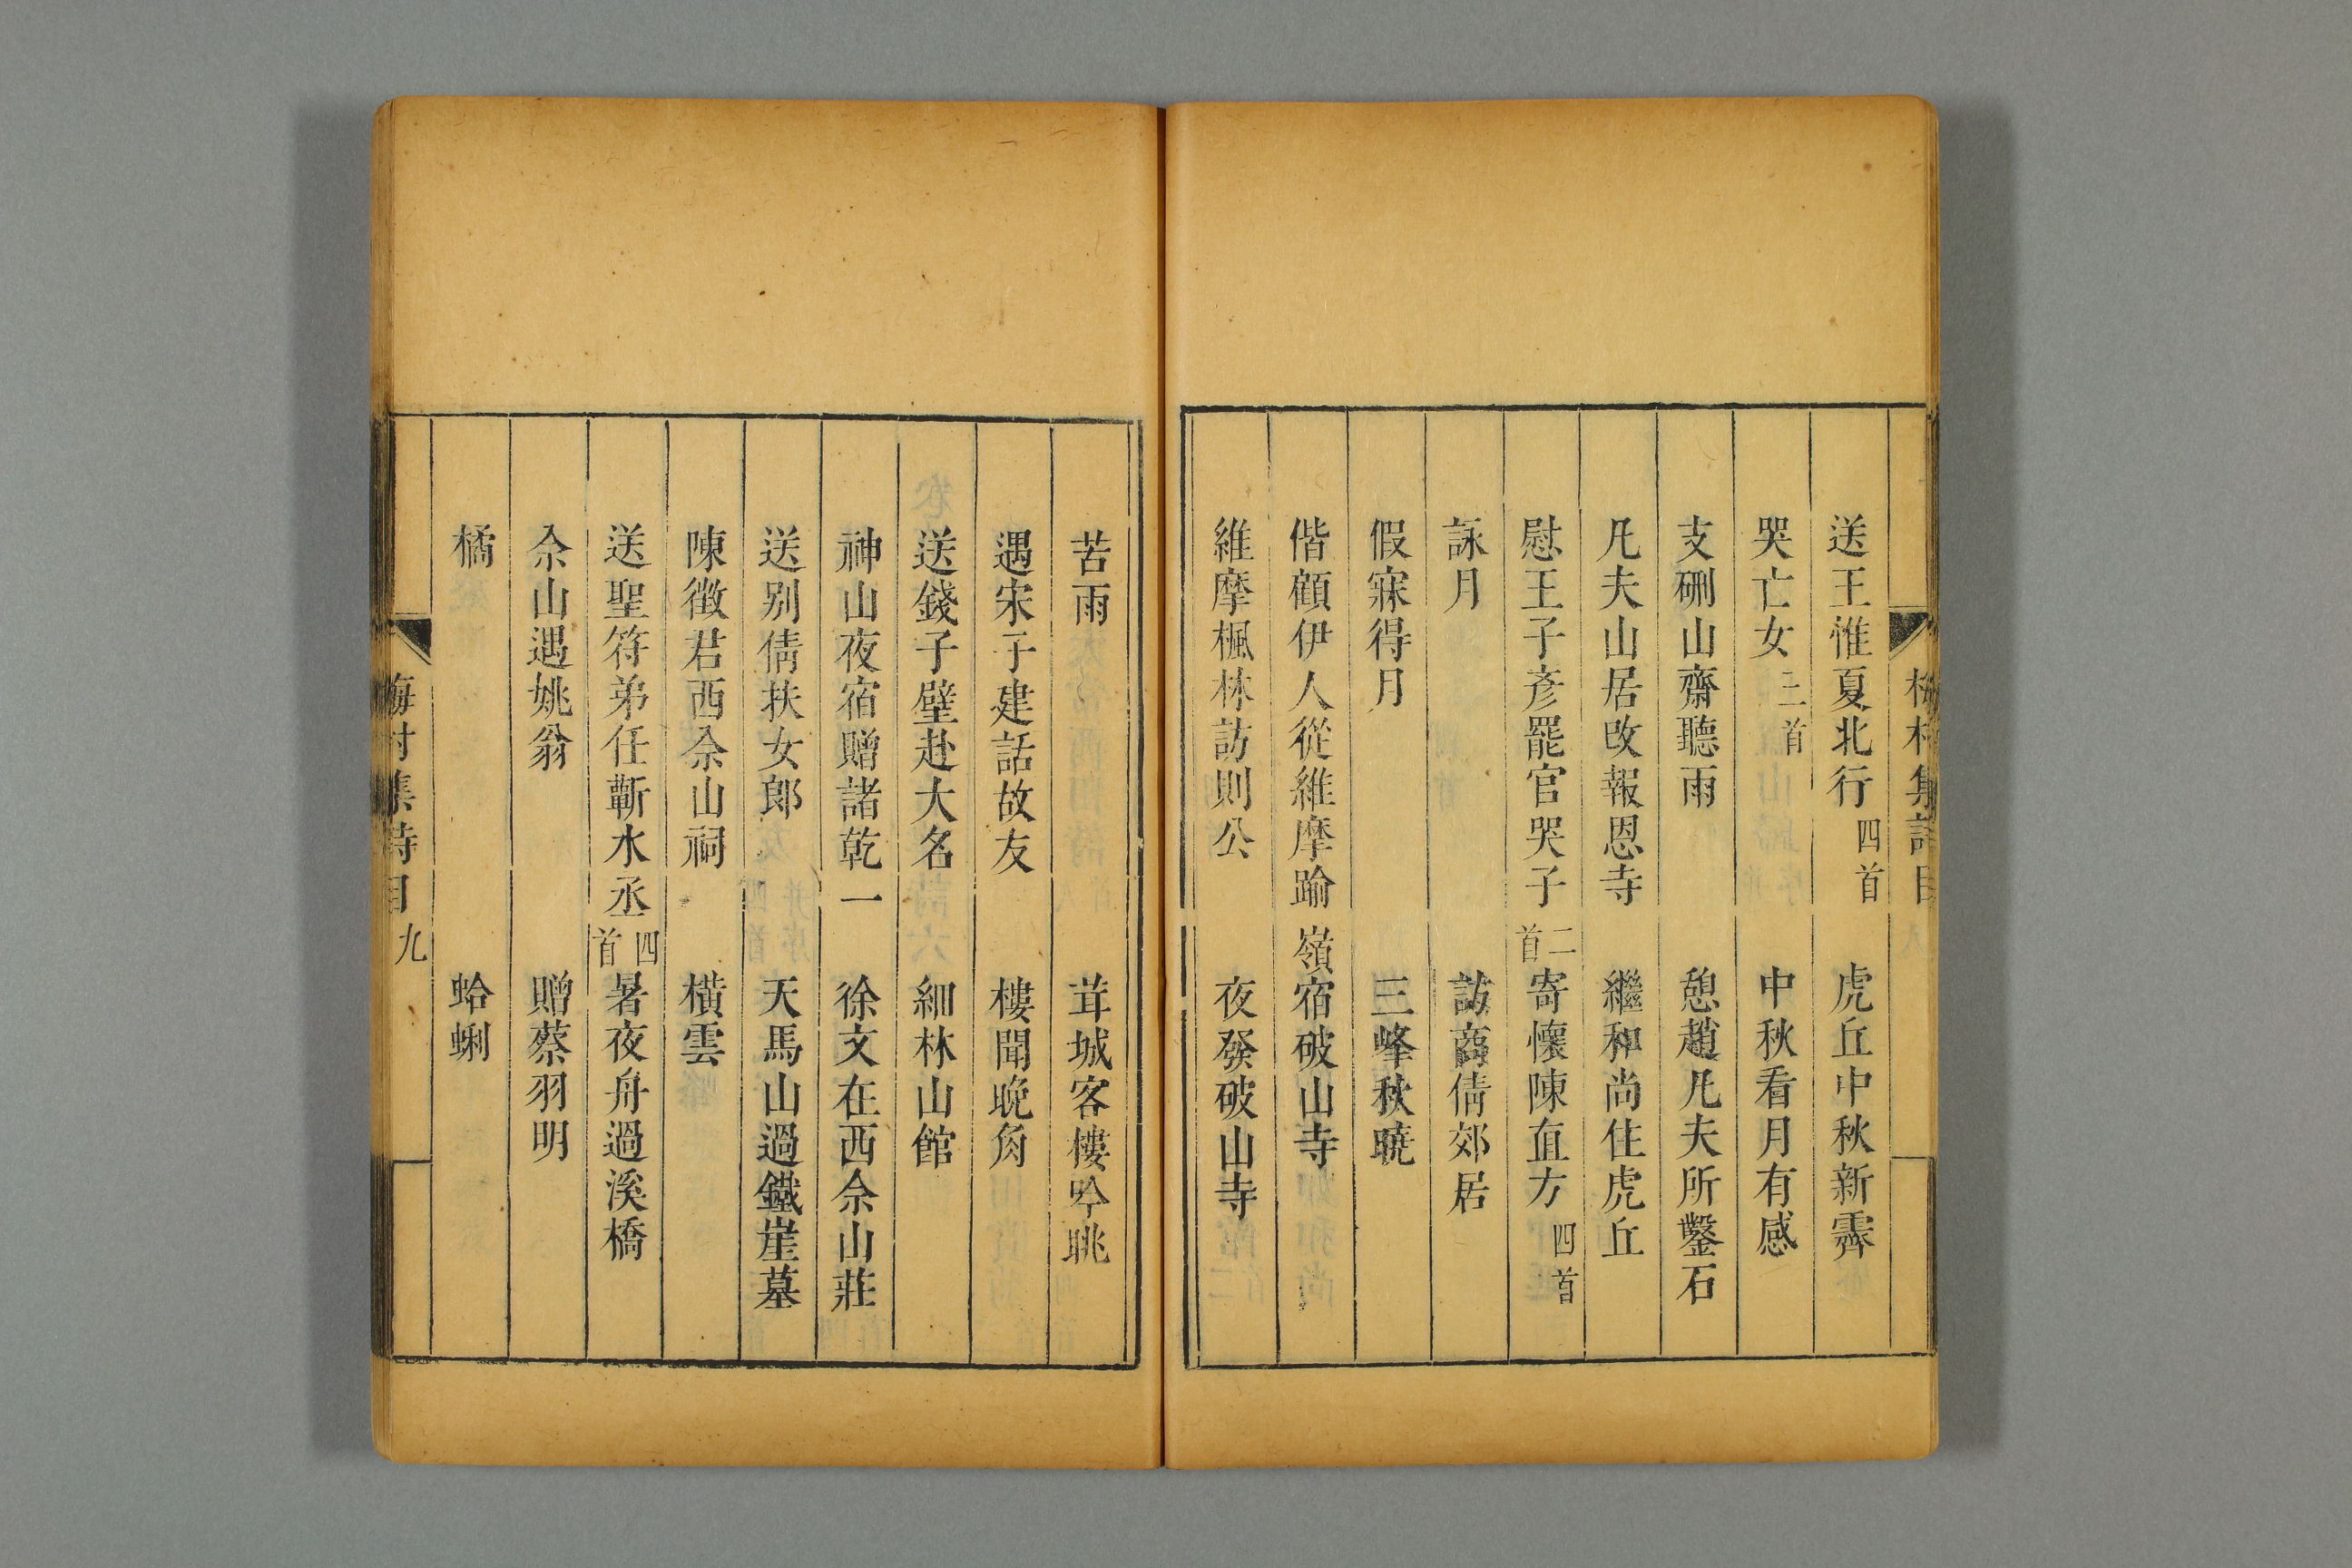 梅村集詩目
送王惟夏北行四首　虎丘中秋新霽
哭亡女三首　中秋看月有感
支硎山齋聽雨　憩趙凡夫所鑿石
凡夫山居改報恩寺　繼和尚住虎丘
慰王子彥罷官哭子二首　寄懷陳直方四首
詠月　訪商倩郊居
假寐得月　三峰秋曉
偕顧伊人從維摩踰嶺宿破山寺
維摩楓林訪則公　夜發破山寺
苦雨　茸城客樓吟眺
遇宋子建話故友　樓聞晚角
送錢子璧赴大名　細林山館
神山夜宿贈諸乾一　徐文在西佘山莊
送別倩扶女郎　天馬山過鐵崖墓
陳徵君西佘山祠　橫雲
送聖符弟任蘄水丞四首　暑夜舟過溪橋
佘山遇姚翁　贈蔡羽明
橘　蛤蜊
梅村集詩目　九